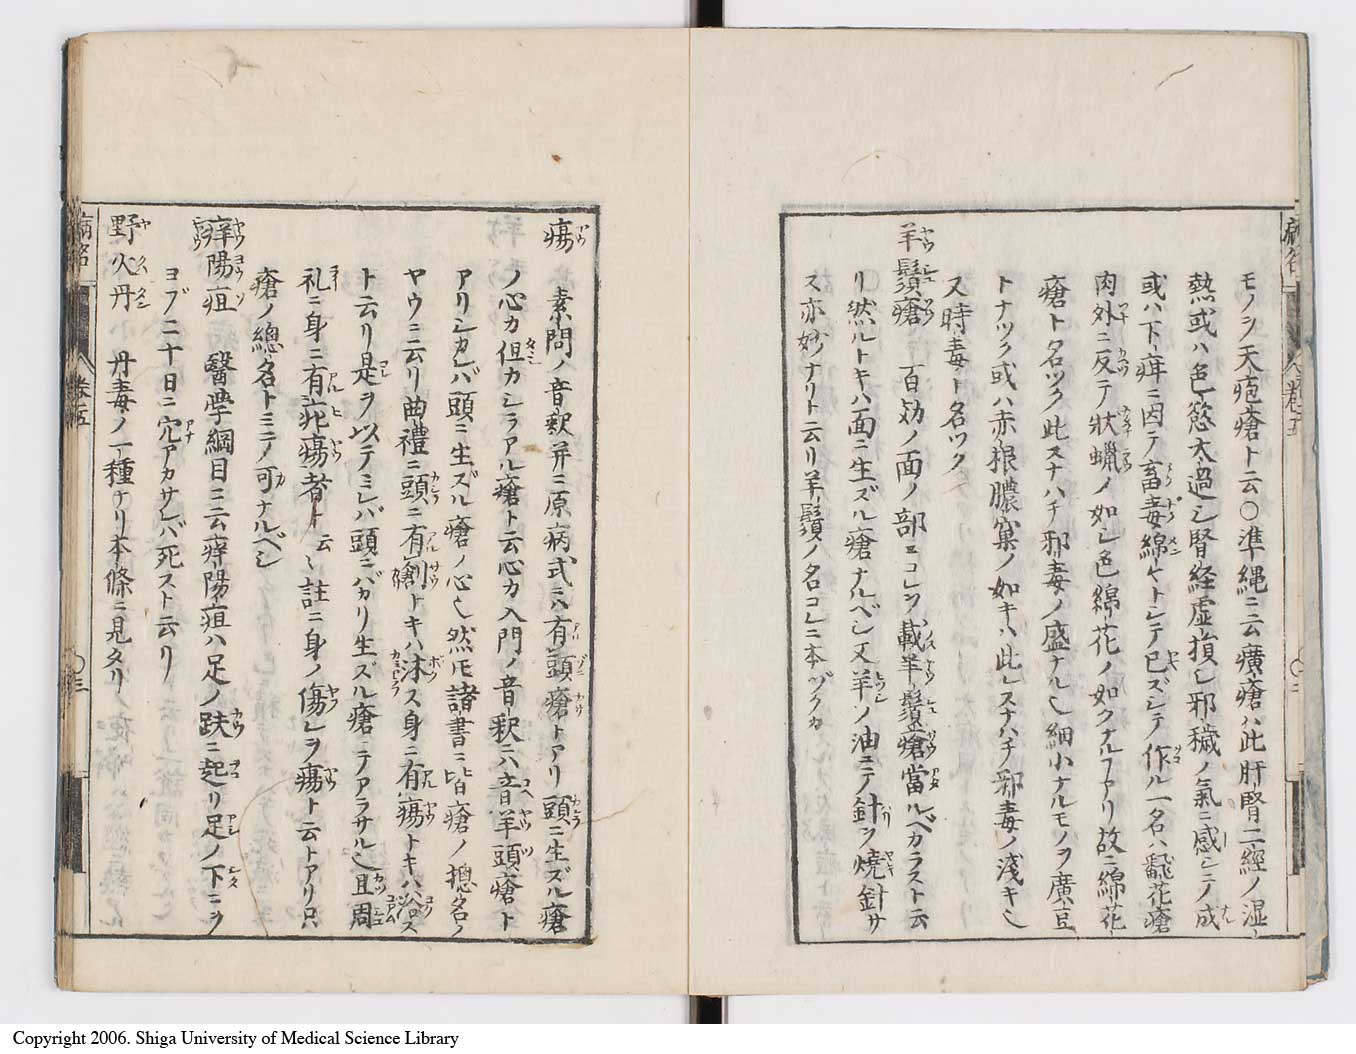 モノヲ天疱瘡ト云〇準縄ニ云癀瘡ハ此肝腎二經ノ湿
熱或ハ色慾太過シ腎経虚損シ邪穢ノ氣ニ感シテ成
或ハ下疳ニ因テ畜毒綿ヤトシテ已ズシテ作ル一名ハ翻花瘡
肉外ニ反テ狀蠟ノ如シ色綿花ノ如クナルアリ故ニ綿花
瘡ト名ツク此スナハチ邪毒ノ盛ナル也細小ナルモノヲ廣豆
トナツク或ハ赤根膿窠ノ如キハ此レスナハチ邪毒ノ淺キ也
ス時毒ト名ツク
羊鬚瘡 百効ノ面ノ部ニコレヲ載羊鬚瘡當ルベカラスト云
リ然ルトキハ面ニ生ズル瘡ナルベシ又羊ノ油ニテ針ヲ燒針サ
ス亦妙ナリト云リ羊鬚ノ名コレニ本ヅクカ
瘍 素問ノ音釈并ニ原病式ニハ有頭瘡トアリ頭ニ生ズル瘡
ノ心カ但カシラアル瘡ト云心カ入門ノ音釈ニハ音羊頭瘡ト
アリシカレバ頭ニ生ズル瘡ノ心也然モ諸書ニ皆瘡ノ摠名ノ
ヤウニ云リ曲禮ニ頭ニ有創トキハ沐ス身ニ有瘍トキハ浴ス
ト云リ是ヲ以テミレバ頭ニバカリ生ズル瘡ニテアラサル也且周
礼ニ身ニ有疕瘍者ト云云註ニ身ノ傷レヲ瘍ト云トアリ只
瘡ノ總名トミテノ可ナルベシ
痒陽疽 醫學綱目ニ云痒陽疽ハ足ノ趺ニ起リ足ノ下ニヲ
ヨブ二十日ニ穴アカサレバ死スト云リ
野火丹 丹毒ノ一種ナリ本條ニ見タリ
病名 卷五 〇三
Copyright 2006. Shiga University of Medical Science Library